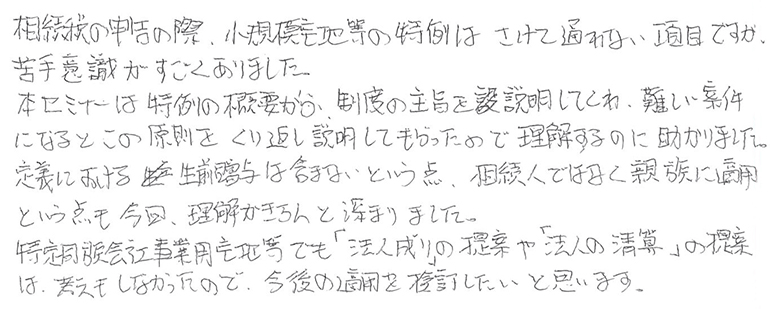 相続税の申告の際、小規模宅地等の特例は さけて通れない項目ですが、
苦手意識がすごくありました。
本セミナーは特例の概要から、制度の主旨を説明してくれ、難しい案件
になるとこの原則をくり返し説明してもらったので理解するのに助かりました。
定義における 生前贈与は含まないという点、相続人ではなく親族に適用
という点も今回、理解がきちんと深まりました。
特定同族会社事業用宅地等でも「法人成り」の提案や「法人の清算」の提案
は、考えもしなかったので、今後の適用を検討したいと思います。